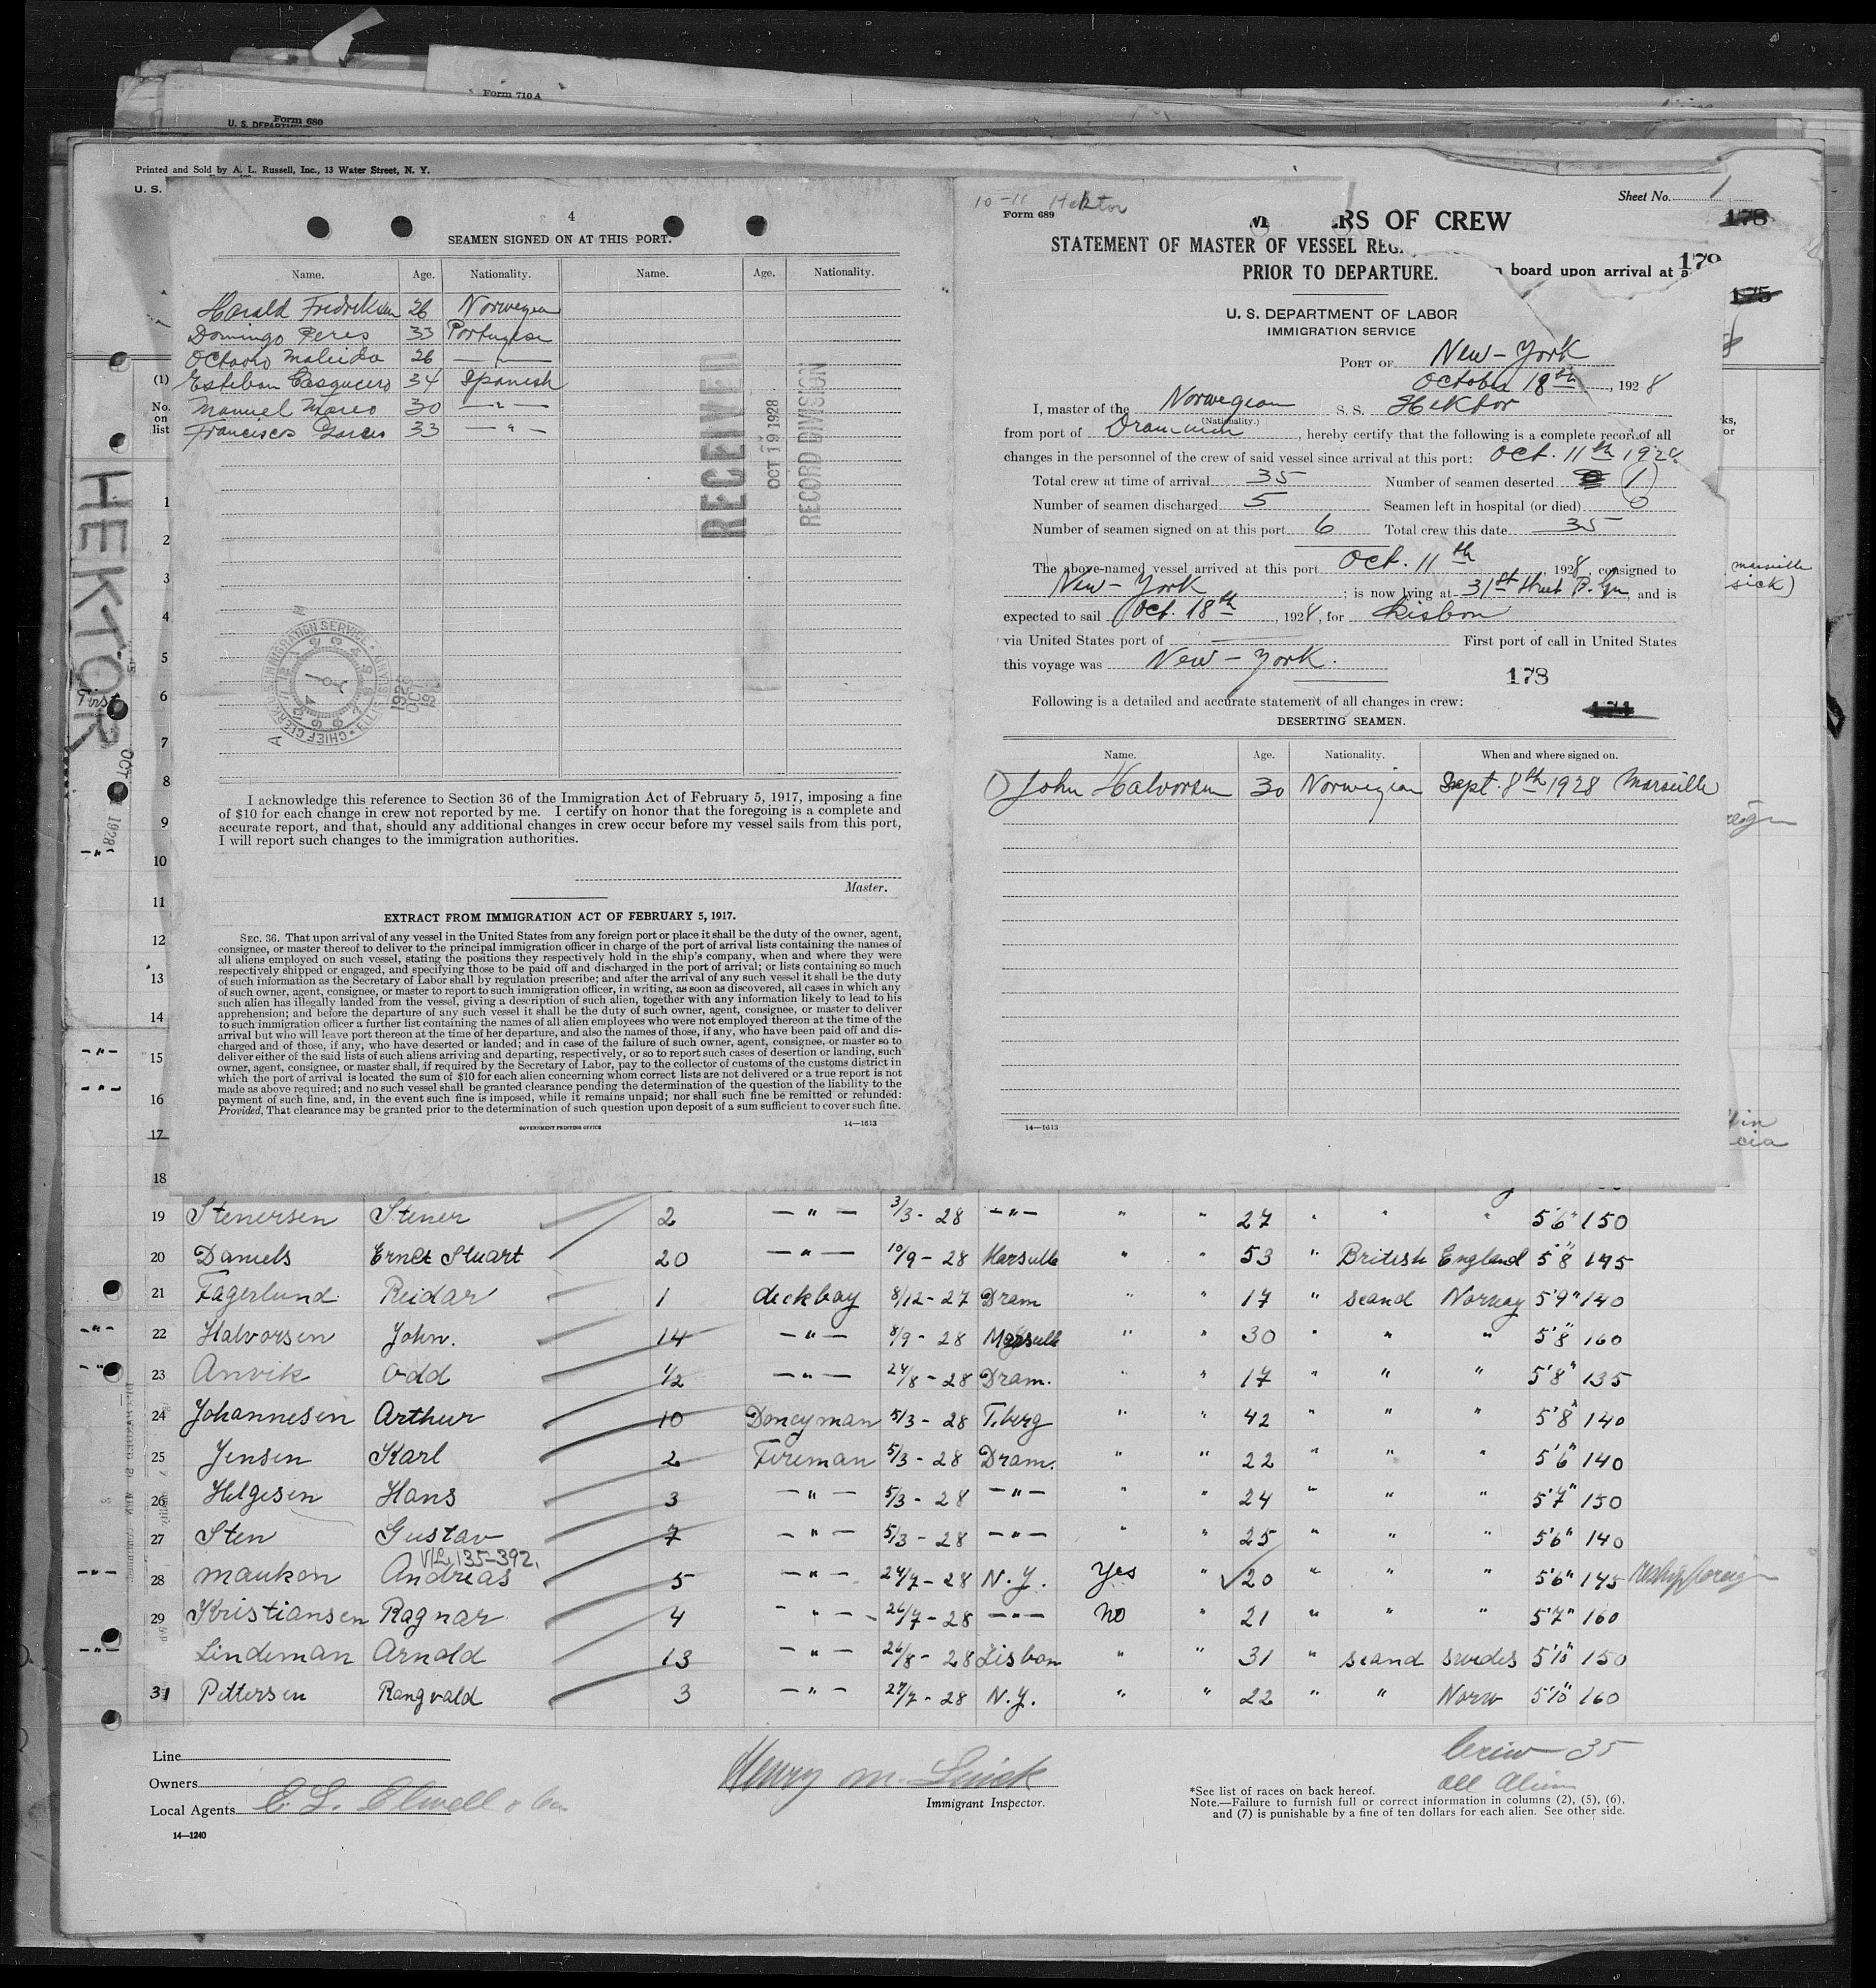 Form 710 A
Form 680
U. S. DEPARTMENT
Printed and Sold by A. L. Russell, Inc., 13 Water Street, N. Y.
U. S.
4
SEAMEN SIGNED ON AT THIS PORT.
Name. Age. Nationality. Name. Age. Nationality.
Harald Fredriksen 26 Norwegian
Domingo Peres 33 Portugese
26 — " —
Esteban 34 Spanish
Manuel 30 — " —
Francisco 33 — " —
RECEIVED
OCT 19 1928
RECORD DIVISION
(1)
No. on list
HEKTOR
OCT 1928
First
1
2
3
4
5
6
7
8
9
10
11
12
13
14
15
16
17
18
I acknowledge this reference to Section 36 of the Immigration Act of February 5, 1917, imposing a fine
of $10 for each change in crew not reported by me. I certify on honor that the foregoing is a complete and
accurate report, and that, should any additional changes in crew occur before my vessel sails from this port,
I will report such changes to the immigration authorities.
Master.
EXTRACT FROM IMMIGRATION ACT OF FEBRUARY 5, 1917.
SEC. 36. That upon arrival of any vessel in the United States from any foreign port or place it shall be the duty of the owner, agent,
consignee, or master thereof to deliver to the principal immigration officer in charge of the port of arrival lists containing the names of
all aliens employed on such vessel, stating the positions they respectively hold in the ship's company, when and where they were
respectively shipped or engaged, and specifying those to be paid off and discharged in the port of arrival; or lists containing so much
of such information as the Secretary of Labor shall by regulation prescribe; and after the arrival of any such vessel it shall be the duty
of such owner, agent, consignee, or master to report to such immigration officer, in writing, as soon as discovered, all cases in which any
such alien has illegally landed from the vessel, giving a description of such alien, together with any information likely to lead to his
apprehension; and before the departure of any such vessel it shall be the duty of such owner, agent, consignee, or master to deliver
to such immigration officer a further list containing the names of all alien employees who were not employed thereon at the time of the
arrival but who will leave port thereon at the time of her departure, and also the names of those, if any, who have been paid off and dis-
charged and of those, if any, who have deserted or landed; and in case of the failure of such owner, agent, consignee, or master so to
deliver either of the said lists of such aliens arriving and departing, respectively, or so to report such cases of desertion or landing, such
owner, agent, consignee, or master shall, if required by the Secretary of Labor, pay to the collector of customs of the customs district in
which the port of arrival is located the sum of $10 for each alien concerning whom correct lists are not delivered or a true report is not
made as above required; and no such vessel shall be granted clearance pending the determination of the question of the liability to the
payment of such fine, and, in the event such fine is imposed, while it remains unpaid; nor shall such fine be remitted or refunded:
Provided, That clearance may be granted prior to the determination of such question upon deposit of a sum sufficient to cover such fine.
GOVERNMENT PRINTING OFFICE 14—1613
Sheet No. 1
178
179
175
10-11 Hektor
Form 689
RS OF CREW
STATEMENT OF MASTER OF VESSEL REG
PRIOR TO DEPARTURE.
board upon arrival at
U. S. DEPARTMENT OF LABOR
IMMIGRATION SERVICE
PORT OF New-York
October 18th, 1928
I, master of the Norwegian S. S. Hektor
(Nationality.)
from port of Drammen, hereby certify that the following is a complete record of all
changes in the personnel of the crew of said vessel since arrival at this port: Oct. 11th 1928
Total crew at time of arrival 35 Number of seamen deserted (1)
Number of seamen discharged 5 Seamen left in hospital (or died) 0
Number of seamen signed on at this port 6 Total crew this date 35
The above-named vessel arrived at this port Oct. 11th, 1928, consigned to
New-York; is now lying at 31st Street B.lyn, and is
expected to sail Oct. 18th, 1928, for Lisbon
via United States port of First port of call in United States
this voyage was New-York.
178
Following is a detailed and accurate statement of all changes in crew:
DESERTING SEAMEN.
Name. Age. Nationality. When and where signed on.
1) John Halvorsen 30 Norwegian Sept. 8th 1928 Marseille
14—1613
ks,
or
marseille
sick)
19 Stenersen Stener 2 — " — 3/3 - 28 — " — " " 27 " " " 5'6" 150
20 Daniels Ernet Stuart 20 — " — 10/9 - 28 Marseille " " 53 " British England 5'8" 145
21 Fagerlund Reidar 1 deckboy 8/12 - 27 Dram " " 17 " scand Norway 5'9" 140
22 Halvorsen John. 14 — " — 8/9 - 28 Marseille " " 30 " " " 5'8" 160
23 Anvik Odd 1/2 — " — 24/8 - 28 Dram. " " 17 " " " 5'8" 135
24 Johannesen Arthur 10 Doncyman 5/3 - 28 T.berg " " 42 " " " 5'8" 140
25 Jensen Karl 2 Fireman 5/3 - 28 Dram. " " 22 " " " 5'6" 140
26 Helgesen Hans 3 — " — 5/3 - 28 — " — " " 24 " " " 5'7" 150
27 Sten Gustav 7 — " — 5/3 - 28 — " — " " 25 " " " 5'6" 140
V/L 135-392.
28 Maukon Andreas 5 — " — 24/7 - 28 N.Y. Yes " 20 " " " 5'6" 145 reship foreign
29 Kristiansen Ragnar 4 — " — 26/7 - 28 — " — no " 21 " " " 5'7" 160
Lindeman Arnold 13 — " — 26/8 - 28 Lisbon " " 31 " scand swedes 5'10" 150
31 Pettersen Rangvald 3 — " — 27/7 - 28 N.Y. " " 22 " " Norw 5'10" 160
Line
Owners
Local Agents E. L. Elwell & Co.
14—1240
Henry M.
Immigrant Inspector.
Crew 35
all alien
*See list of races on back hereof.
Note.—Failure to furnish full or correct information in columns (2), (5), (6),
and (7) is punishable by a fine of ten dollars for each alien. See other side.